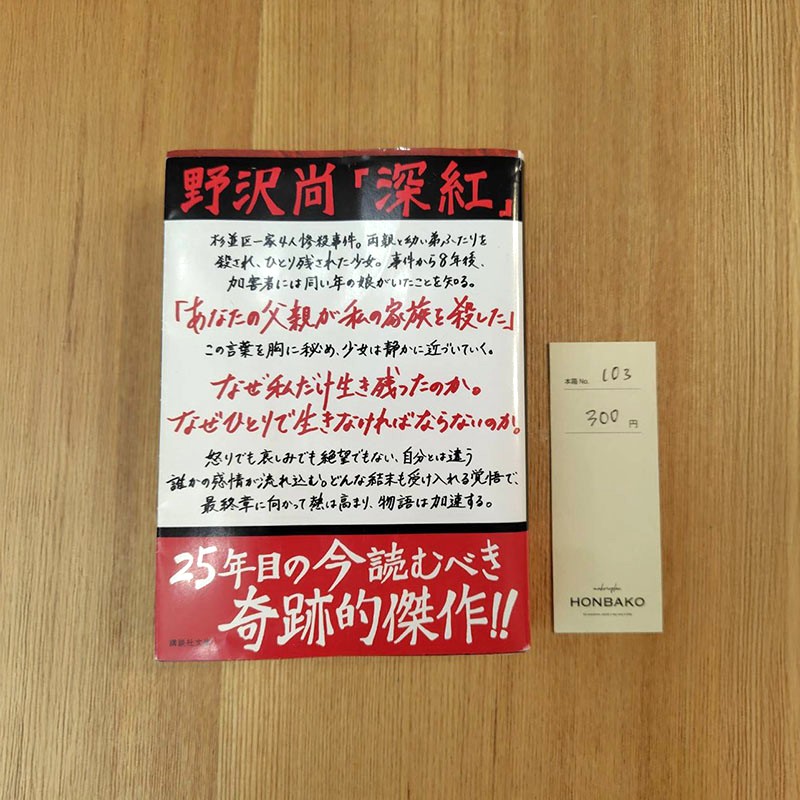 野沢尚「深紅」
杉並区一家4人惨殺事件。両親と幼い弟ふたりを
殺され、ひとり残された少女。事件から8年後、
加害者には同い年の娘がいたことを知る。
「あなたの父親が私の家族を殺した」
この言葉を胸に秘め、少女は静かに近づいていく。
なぜ私だけ生き残ったのか。
なぜひとりで生きなければならないのか。
怒りでも哀しみでも絶望でもない、自分とは違う
誰かの感情が流れ込む。どんな結末も受け入れる覚悟で、
最終章に向かって熱は高まり、物語は加速する。
25年目の今読むべき
奇跡的傑作!!
講談社文庫
本箱 No. 103
300 円
HONBAKO